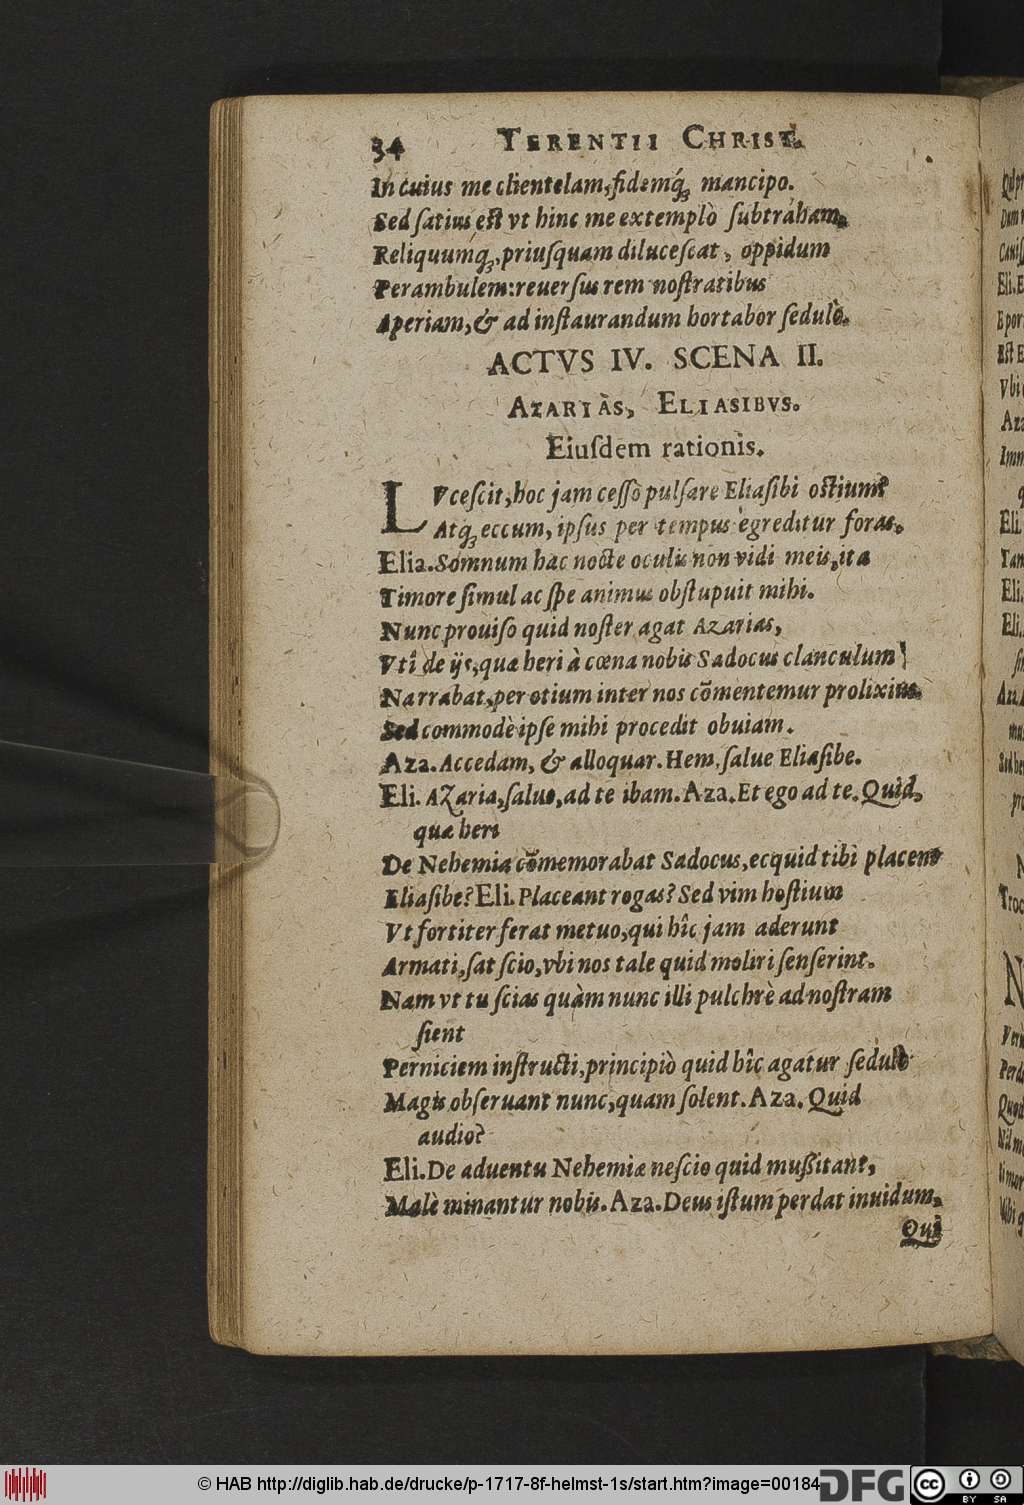 34 TERENTII CHRIST.
In cuius me clientelam, fidemq́ꝫ mancipo.
Sed ſatius eſt vt hinc me extemplò ſubtráham,
Reliquumq́ꝫ, priuſquam diluceſcat, oppidum
Perambulem: reuerſus rem noſtratibus
Aperiam, & ad inſtaurandum hortabor ſedulò.
ACTVS IV. SCENA II.
AZARIÀS, ELIASIBVS.
Eiuſdem rationis.
LVceſcit, hoc jam ceſſò pulſare Eliaſibi oſtium?
Atq́ꝫ eccum, ipſus per tempus ègreditur foras.
Elia. Somnum hac nocte oculis non vidi meis, ita
Timore ſimul ac ſpe animus obſtupuit mihi.
Nunc prouiſo quid noſter agat Azarias,
Vtî de ijs, quæ heri à cœna nobis Sadocus clanculum
Narrabat, per otium inter nos cõmentemur prolixius.
Sed commodè ipſe mihi procedit obuiam.
Aza. Accedam, & alloquar. Hem, ſalue Eliaſibe.
Eli. AZaria, ſalue, ad te ibam. Aza. Et ego ad te. Quid,
quæ heri
De Nehemia cõmemorabat Sadocus, ecquid tibi placent
Eliaſibe? Eli. Placeant rogas? Sed vim hoſtium
Vt fortiter ferat metuo, qui hîc jam aderunt
Armati, ſat ſcio, vbi nos tale quid moliri ſenſerint.
Nam vt tu ſcias quàm nunc illi pulchrè ad noſtram
ſient
Perniciem inſtructi, principiò quid hîc agatur ſedulò
Magis obſeruant nunc, quam ſolent. Aza. Quid
audio?
Eli. De aduentu Nehemiæ neſcio quid muſsitant,
Malè minantur nobis. Aza. Deus iſtum perdat inuidum,
Qui
© HAB http://diglib.hab.de/drucke/p-1717-8f-helmst-1s/start.htm?image=00184
DFG
cc BY SA